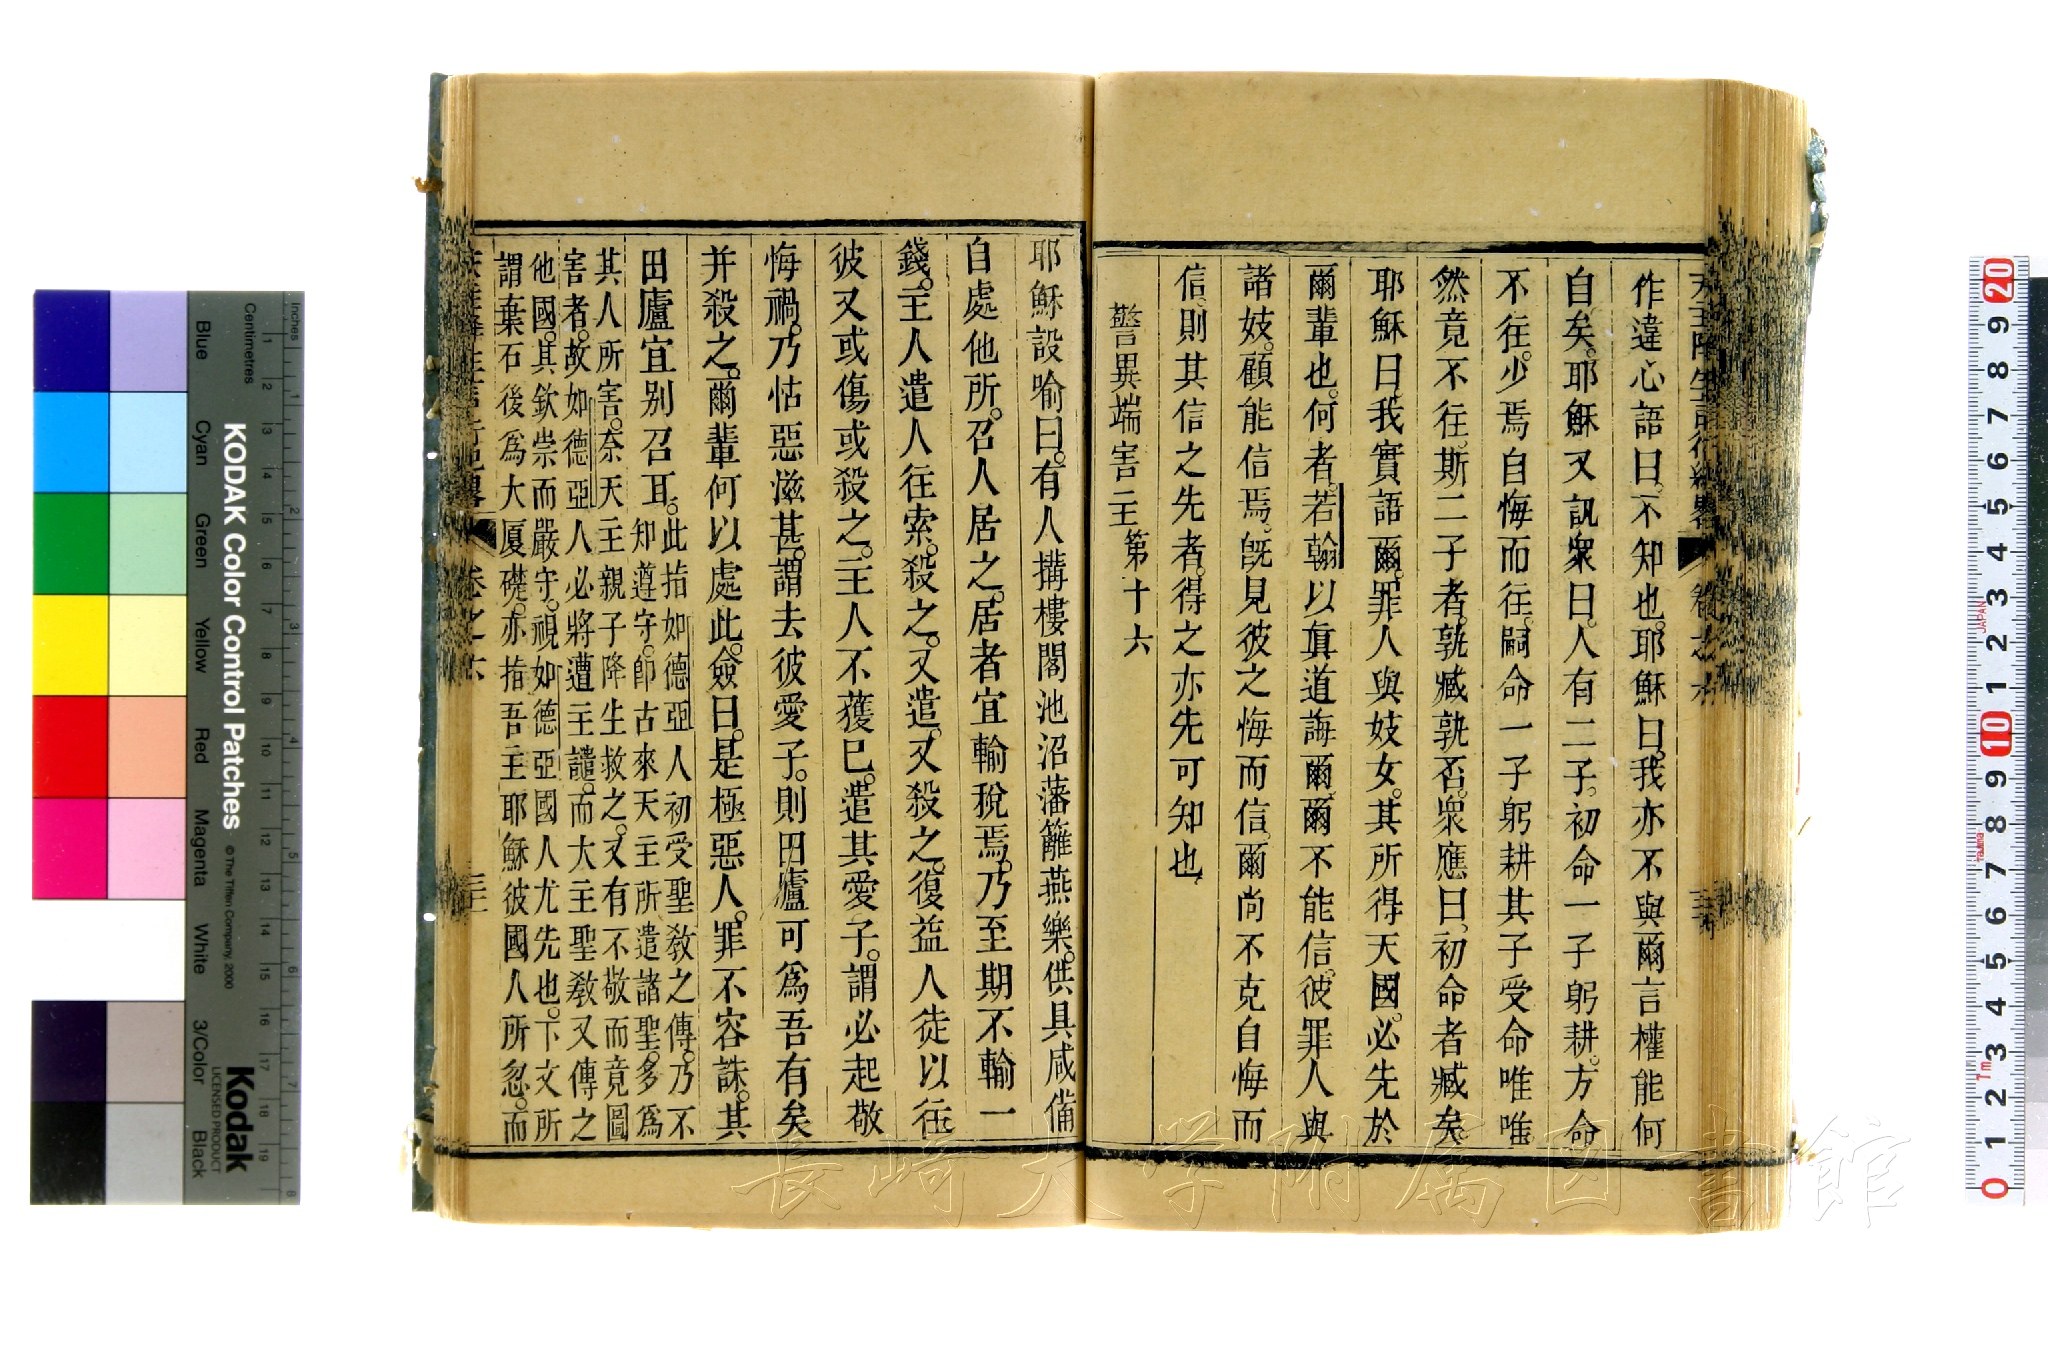 天主降生言行紀畧 卷之六
作違心語曰。不知也。耶穌曰。我亦不與爾言權能何
自矣。耶穌又訊衆曰。人有二子。初命一子躬耕。方命
不往。少焉自悔而往。嗣命一子躬耕其子受命唯唯
然竟不往。斯二子者。孰臧孰否。衆應曰。初命者臧矣。
耶穌曰。我實語爾。罪人與妓女。其所得天國。必先於
爾輩也。何者。若翰以眞道誨爾。爾不能信。彼罪人與
諸妓。顧能信焉。旣見彼之悔而信。爾尚不克自悔而
信。則其信之先者。得之亦先可知也。
警異端害主第十六
耶穌設喻曰。有人搆樓閣池沼藩籬燕樂。供具咸備
自處他所。召人居之。居者宜輸稅焉。乃至期不輸一
錢。主人遣人往索。殺之。又遣。又殺之。復益人徒以往
彼又或傷或殺之。主人不獲已。遣其愛子。謂必起敬
悔禍。乃怙惡滋甚。謂去彼愛子。則田廬可爲吾有矣
并殺之。爾輩何以處此。僉曰。是極惡人。罪不容誅。其
田廬宜別召耳。此指如德亞人初受聖敎之傳。乃不
知遵守。卽古來天主所遣諸聖。多爲
其人所害。奈天主親子降生救之。又有不敬而竟圖
害者。故如德亞人必將遭主譴。而大主聖敎又傳之
他國。其欽崇而嚴守。視如德亞國人尤先也。下文所
謂棄石後爲大厦礎。亦指吾主耶穌彼國人所忽。而
天主降生言行紀畧 卷之六
Inches
Centimetres
KODAK Color Control Patches
© The Tiffen Company, 2000
Kodak
LICENSED PRODUCT
Blue
Cyan
Green
Yellow
Red
Magenta
White
3/Color
Black
JAPAN
長崎大学附属図書館